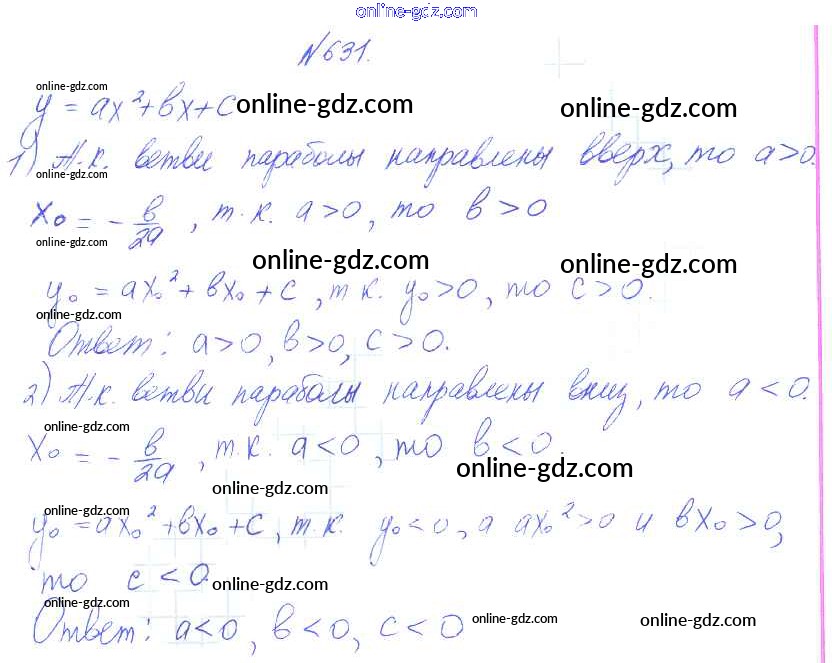 online-gdz.com
№631.
online-gdz.com
y = ax²+bx+c online-gdz.com online-gdz.com
1) Т.к. ветви параболы направлены вверх, то a>0.
online-gdz.com
x₀ = - b/2a , т.к. a>0, то b>0
online-gdz.com
online-gdz.com online-gdz.com
y₀ = ax₀²+bx₀+c, т.к. y₀>0, то c>0.
online-gdz.com
Ответ: a>0, b>0, c>0.
2) Т.к. ветви параболы направлены вниз, то a<0.
online-gdz.com
x₀ = - b/2a , т.к. a<0, то b<0.
online-gdz.com
online-gdz.com
online-gdz.com
y₀ =ax₀²+bx₀+c, т.к. y₀<0, а ax₀²>0 и bx₀>0,
то c<0.
online-gdz.com
online-gdz.com
Ответ: a<0, b<0, c<0
online-gdz.com online-gdz.com